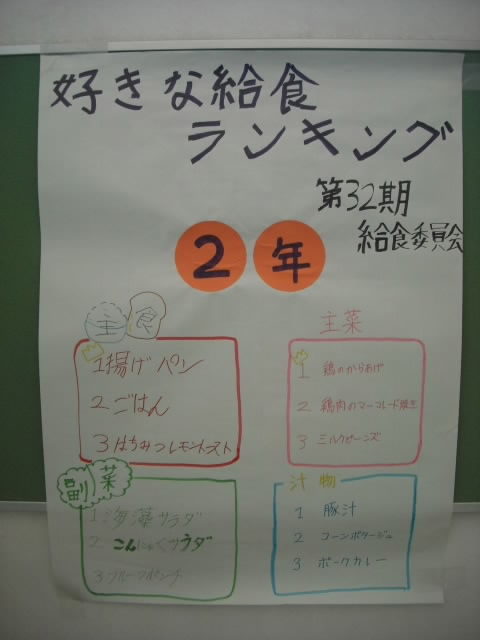 好きな給食
ランキング
第32期
給食委員会
2年
主食
1 揚げパン
2 ごはん
3 はちみつレモントースト
主菜
1 鶏のからあげ
2 鶏肉のマーマレード焼き
3 ミルクビーンズ
副菜
1 海藻サラダ
2 こんにゃくサラダ
3 フルーツポンチ
汁物
1 豚汁
2 コーンポタージュ
3 ポークカレー